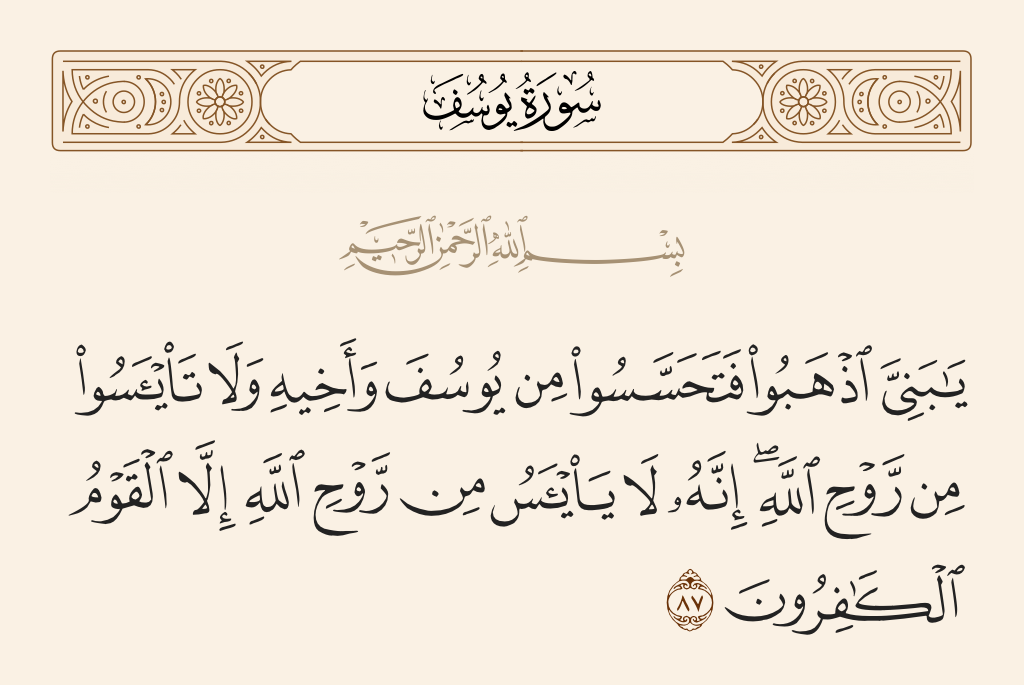 سُورَةُ يُوسُفَ
بِسْمِ ٱللَّهِ ٱلرَّحْمَٰنِ ٱلرَّحِيمِ
يَٰبَنِىَّ ٱذْهَبُوا۟ فَتَحَسَّسُوا۟ مِن يُوسُفَ وَأَخِيهِ وَلَا تَا۟يْـَٔسُوا۟
مِن رَّوْحِ ٱللَّهِ ۖ إِنَّهُۥ لَا يَا۟يْـَٔسُ مِن رَّوْحِ ٱللَّهِ إِلَّا ٱلْقَوْمُ
ٱلْكَٰفِرُونَ ٨٧